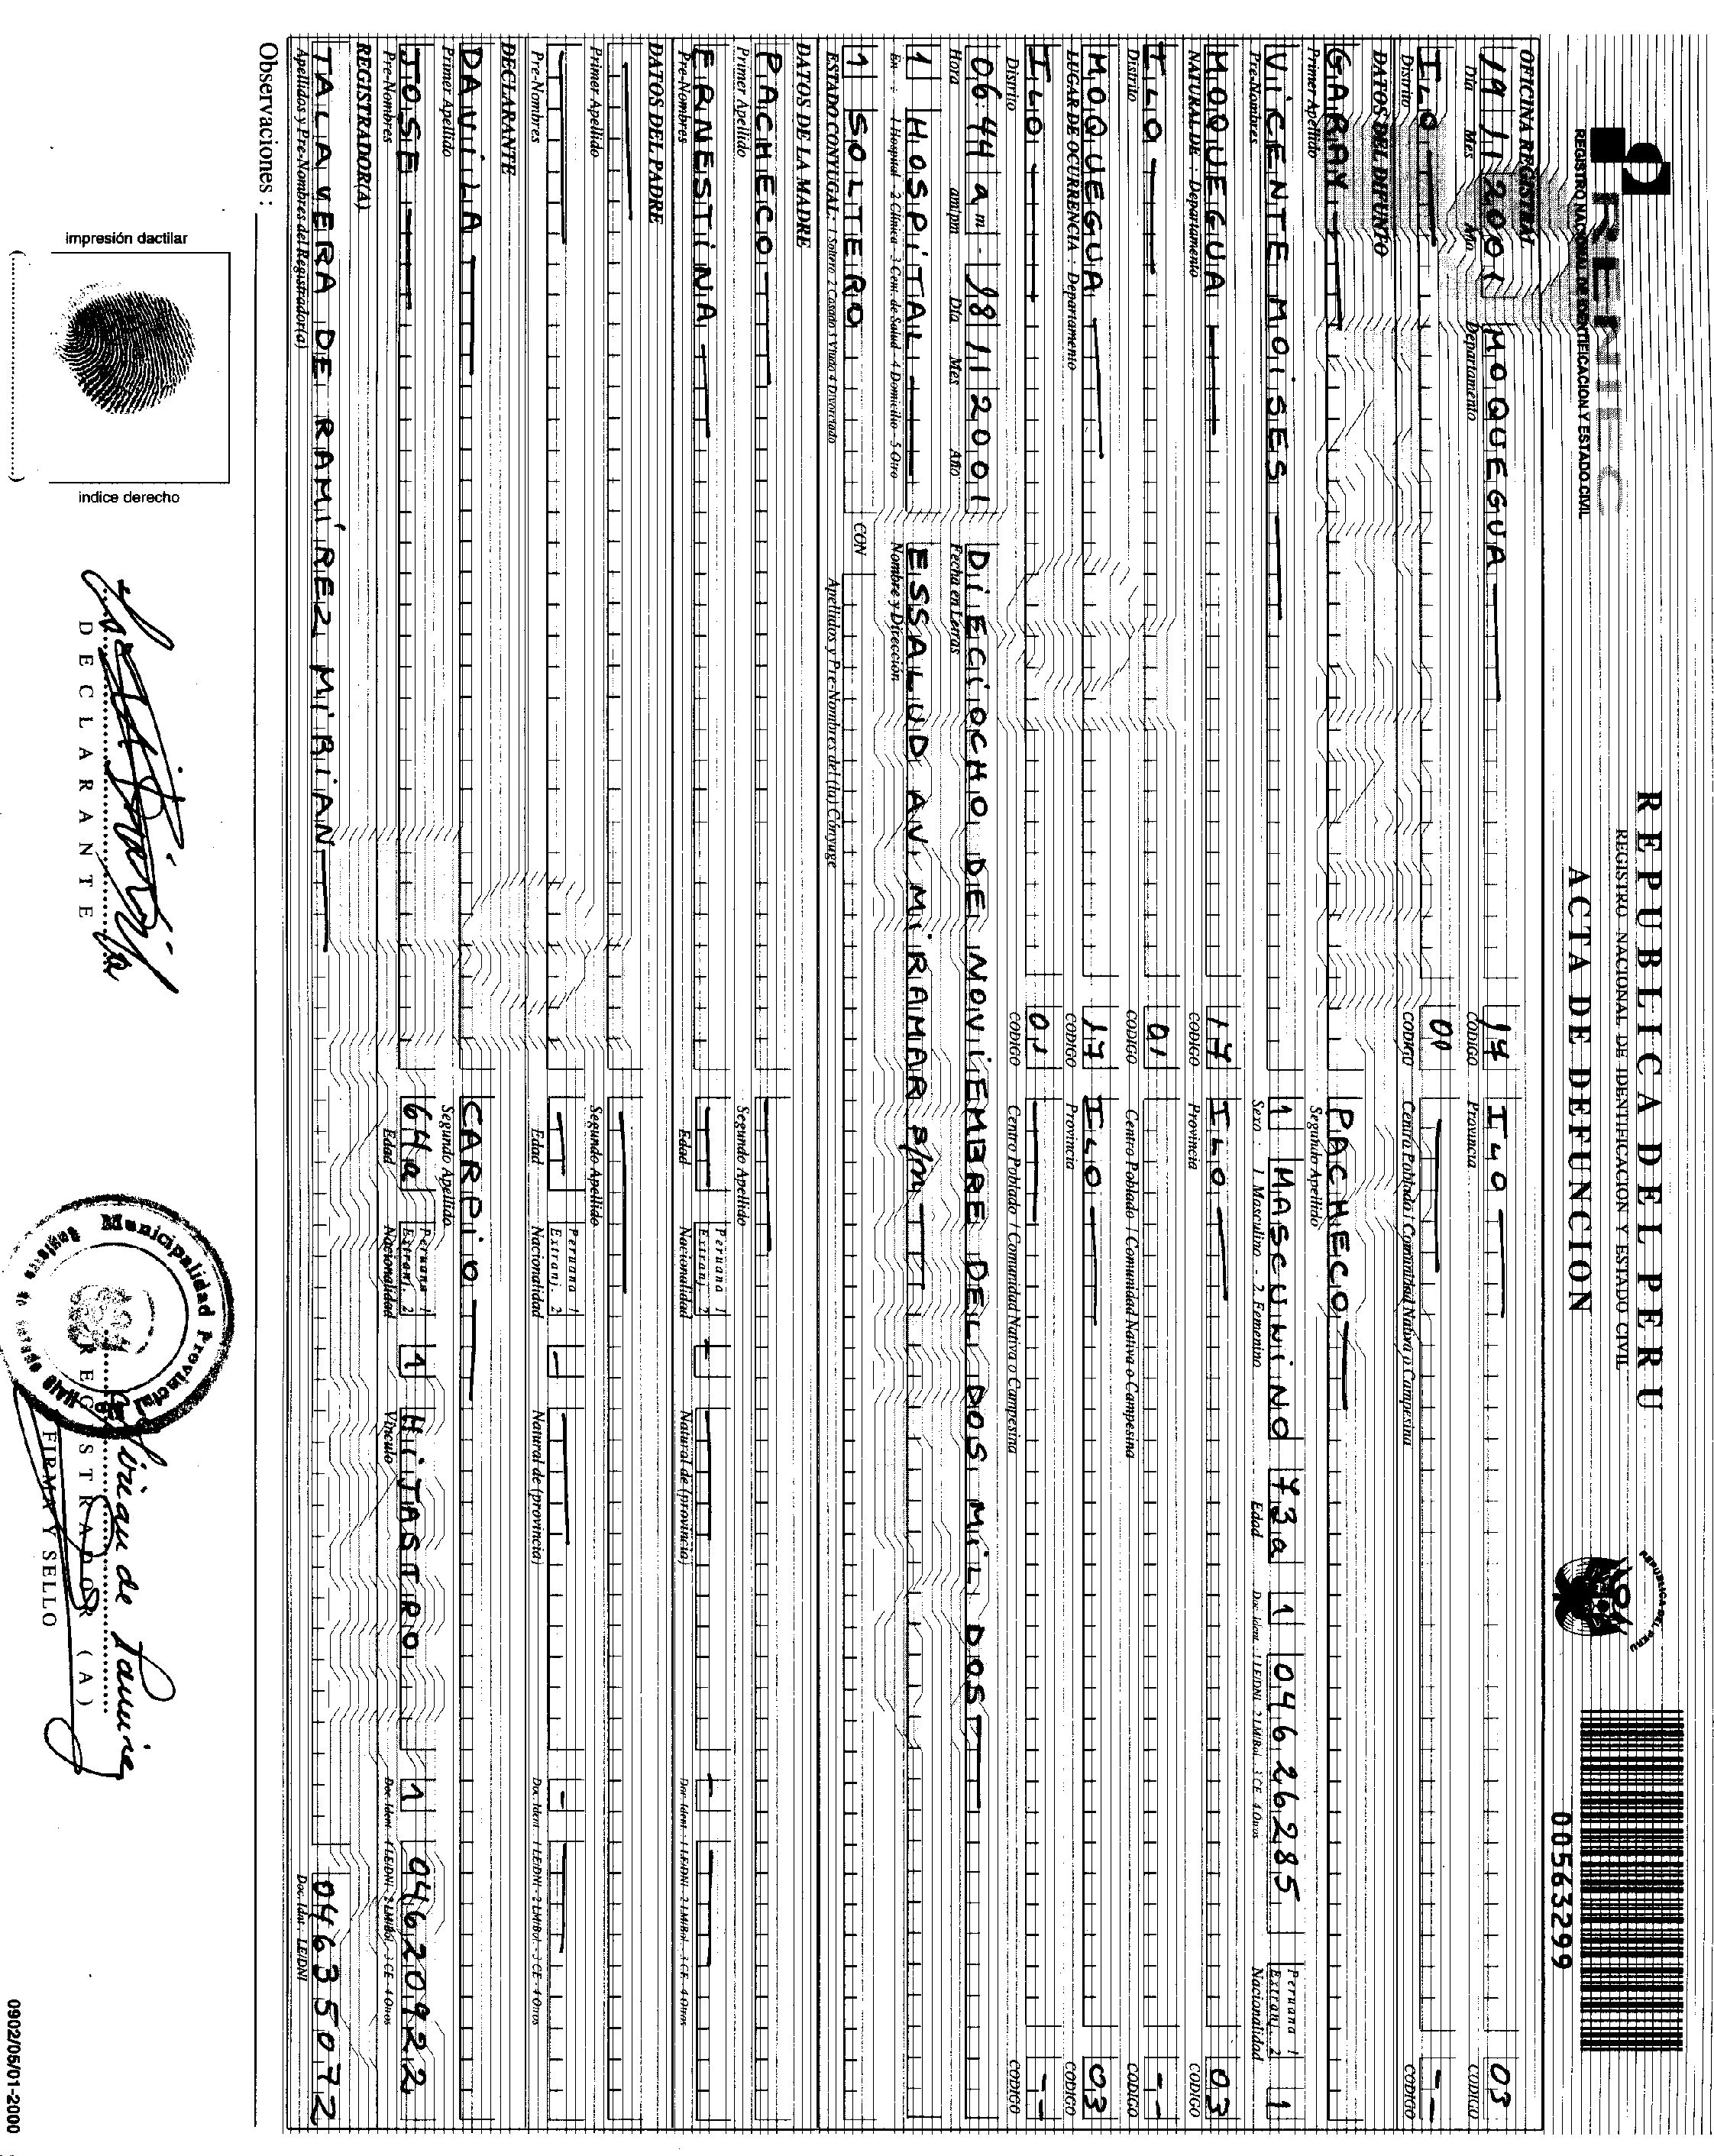 REPUBLICA DEL PERU
REGISTRO NACIONAL DE IDENTIFICACION Y ESTADO CIVIL
ACTA DE DEFUNCION
RENIEC
REGISTRO NACIONAL DE IDENTIFICACION Y ESTADO CIVIL
REPUBLICA DEL PERU
00563299
OFICINA REGISTRAL
19 11 2001 MOQUEGUA 17 ILO 03
Día Mes Año Departamento CODIGO Provincia CODIGO
ILO 01 --
Distrito CODIGO Centro Poblado / Comunidad Nativa o Campesina CODIGO
DATOS DEL DIFUNTO
GARAY PACHECO
Primer Apellido Segundo Apellido
VICENTE MOISES 1 MASCUNINO 73a 1 04626285 Peruana 1 Extranj. 2 1
Pre-Nombres Sexo : 1 Masculino - 2. Femenino Edad Doc. Ident. : 1 LE/DNI - 2 LM/Bol. - 3 CE - 4 Otros Nacionalidad
NATURAL DE : Departamento
MOQUEGUA 17 ILO 03
CODIGO Provincia CODIGO
ILO 01 --
Distrito CODIGO Centro Poblado / Comunidad Nativa o Campesina CODIGO
LUGAR DE OCURRENCIA : Departamento
MOQUEGUA 17 ILO 03
CODIGO Provincia CODIGO
ILO 01 --
Distrito CODIGO Centro Poblado / Comunidad Nativa o Campesina CODIGO
06:44 am - 18 11 2001 DIECIOCHO DE NOVIEMBRE DEL DOS MIL DOS
Hora am/pm Día Mes Año Fecha en Letras
1 HOSPITAL ESSALUD AV MIRAMAR S/N
En : 1 Hospital - 2 Clínica - 3 Cent. de Salud - 4 Domicilio - 5 Otro Nombre y Dirección
1 SOLTERO CON
ESTADO CONYUGAL: 1 Soltero 2 Casado 3 Viudo 4 Divorciado Apellidos y Pre-Nombres del (la) Cónyuge
DATOS DE LA MADRE
PACHECO
Primer Apellido Segundo Apellido
ERNESTINA Peruana 1 Extranj. 2
Pre-Nombres Edad Nacionalidad Natural de (provincia) Doc. Ident. : 1 LE/DNI - 2 LM/Bol. - 3 CE - 4 Otros
DATOS DEL PADRE
Primer Apellido Segundo Apellido
Peruana 1 Extranj. 2
Pre-Nombres Edad Nacionalidad Natural de (provincia) Doc. Ident. : 1 LE/DNI - 2 LM/Bol. - 3 CE - 4 Otros
DECLARANTE
DAVILA CARPIO
Primer Apellido Segundo Apellido
JOSE 64a Peruana 1 Extranj. 2 1 HIJASTRO 1 04620922
Pre-Nombres Edad Nacionalidad Vínculo Doc. Ident. : 1 LE/DNI - 2 LM/Bol. - 3 CE - 4 Otros
REGISTRADOR(A)
TALAVERA DE RAMÍREZ MIRIAN 04635072
Apellidos y Pre-Nombres del Registrador(a) Doc. Idnt.: LE/DNI
Observaciones :
impresión dactilar
indice derecho
DECLARANTE
Municipalidad Provincial
Mirian de Ramirez
REGISTRADOR (A)
FIRMA Y SELLO
0902/05/01-2000